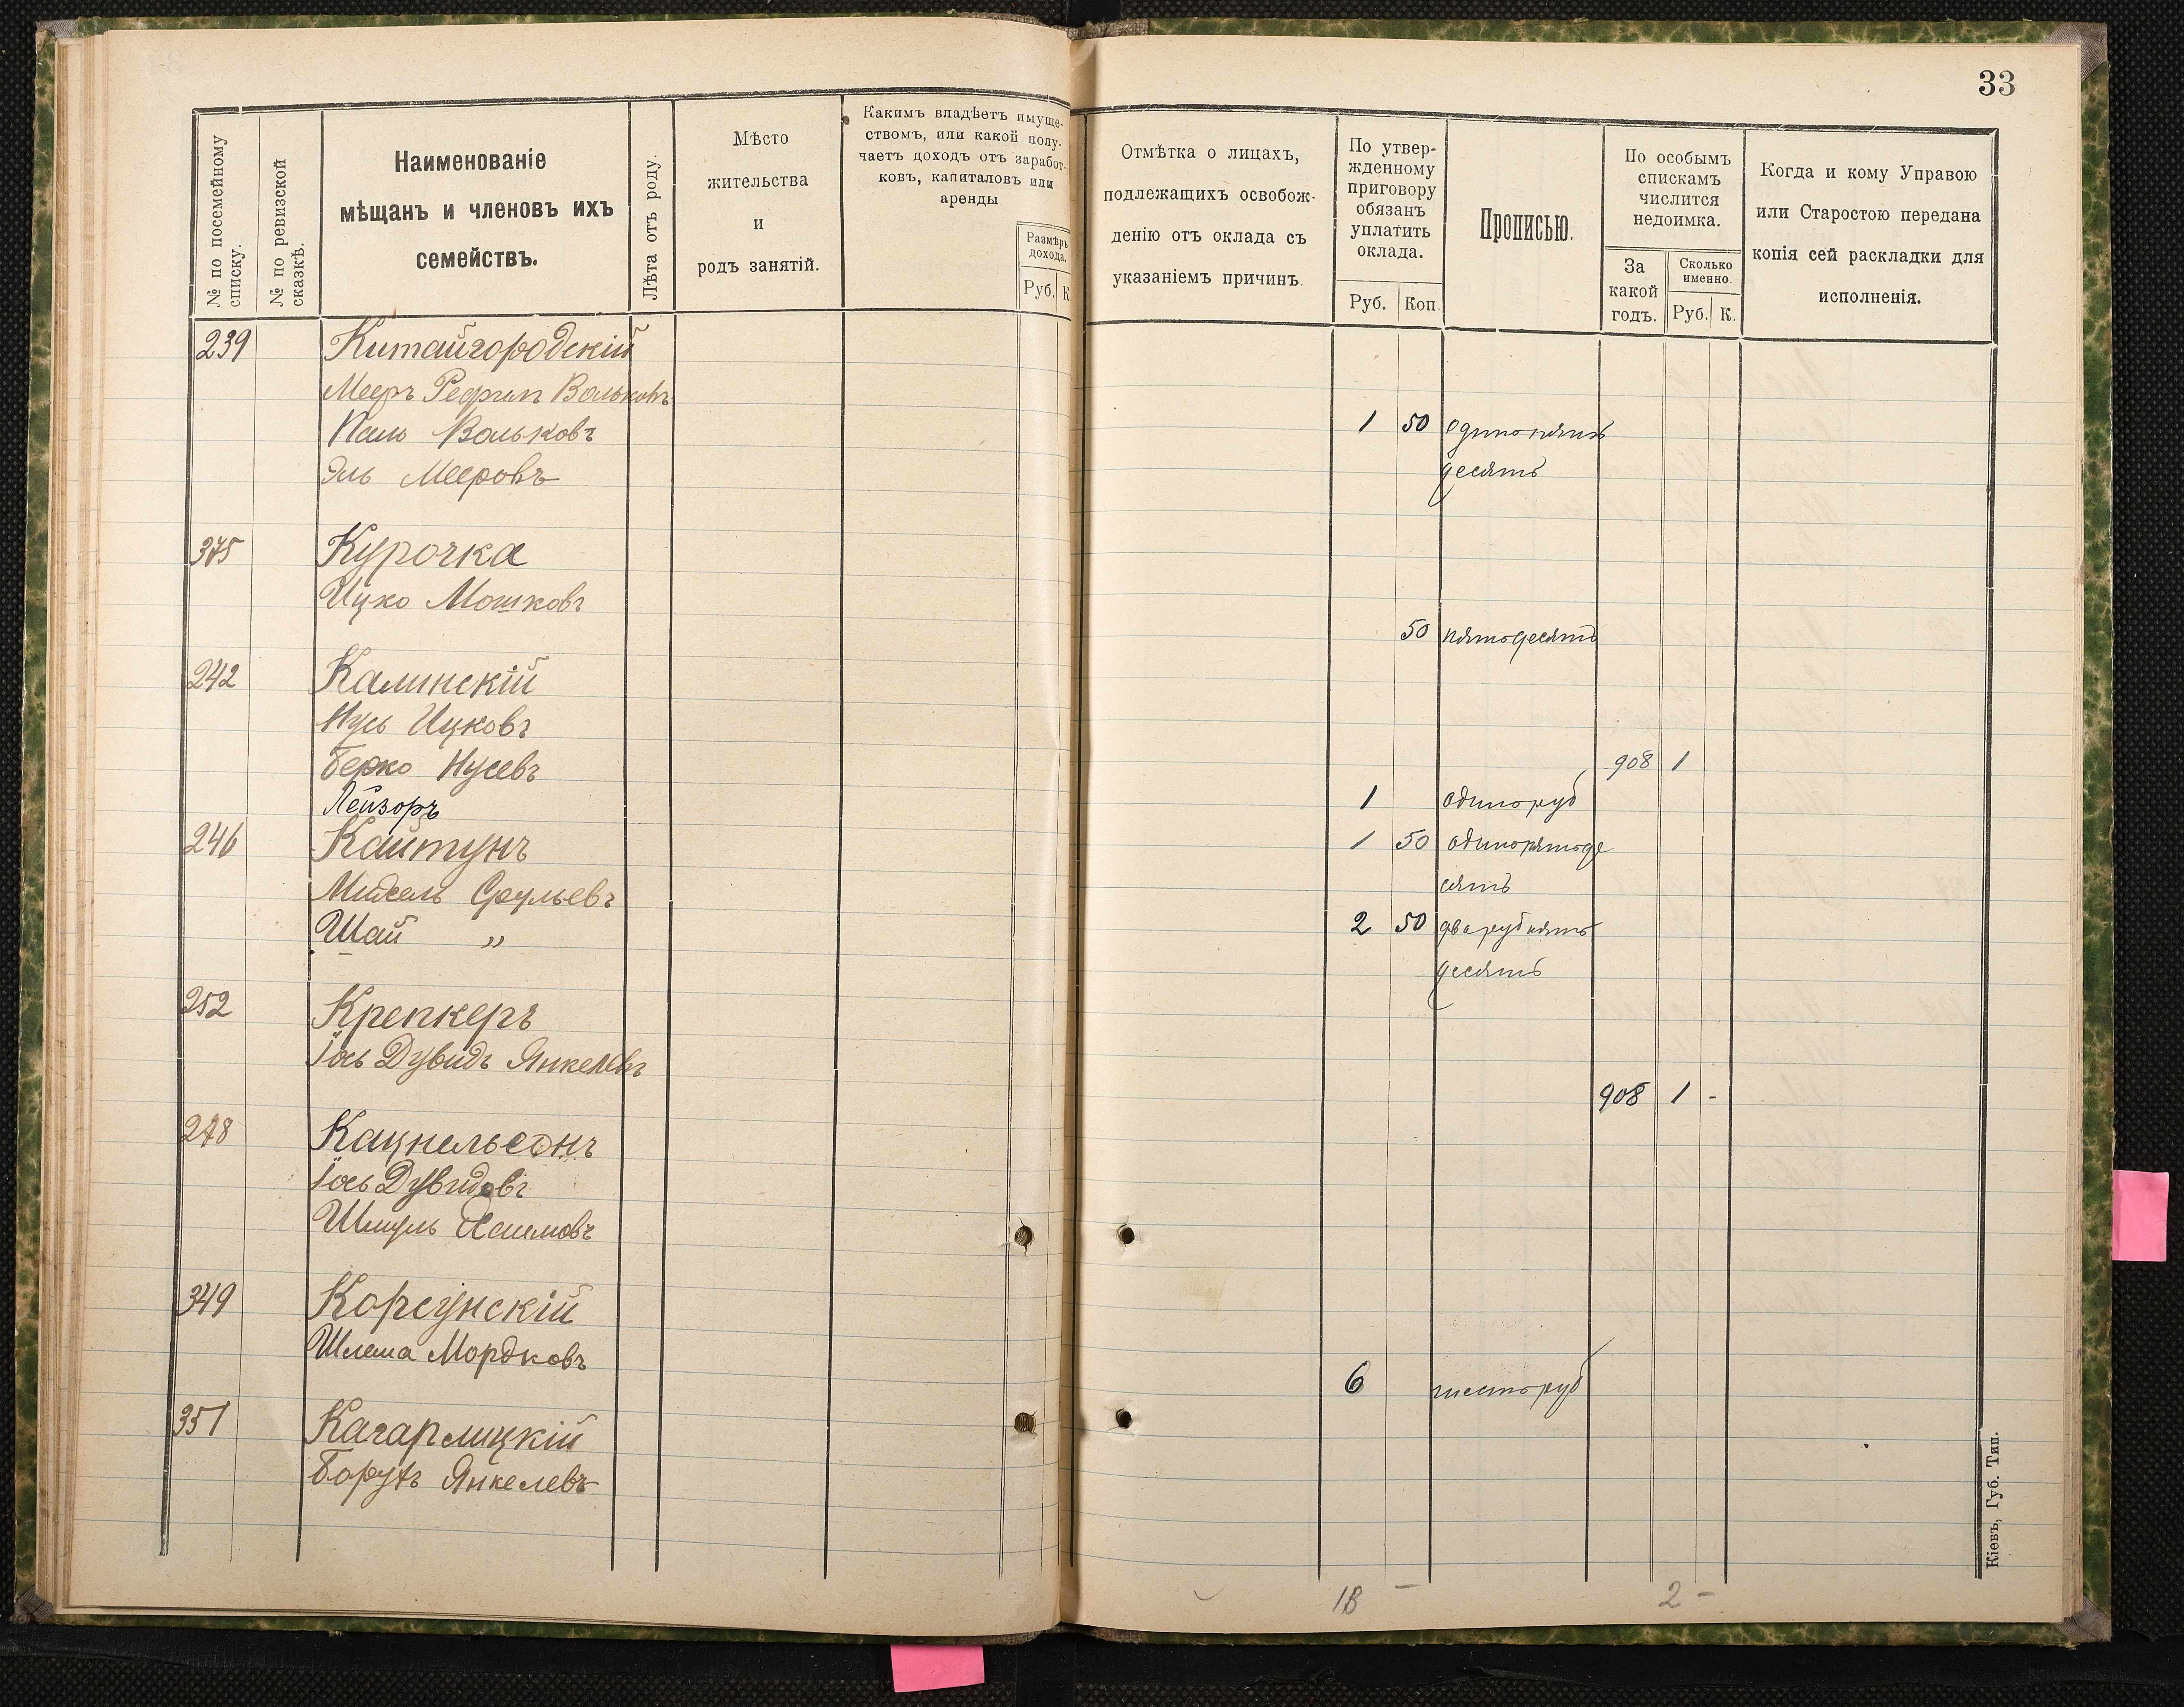 33
№ по посемейному списку.
№ по ревизской сказкѣ.
Наименованіе
мѣщанъ и членовъ ихъ
семействъ.
Лѣта отъ роду.
Мѣсто
жительства
и
родъ занятій.
Какимъ владѣетъ имуще-
ствомъ, или какой полу-
чаетъ доходъ отъ заработ-
ковъ, капиталовъ или
аренды
Размѣръ
дохода.
Руб. К.
Отмѣтка о лицахъ,
подлежащихъ освобож-
денію отъ оклада съ
указаніемъ причинъ.
По утвер-
жденному
приговору
обязанъ
уплатить
оклада.
Руб. Коп.
Прописью.
По особымъ
спискамъ
числится
недоимка.
За
какой
годъ.
Сколько
именно.
Руб. К.
Когда и кому Управою
или Старостою передана
копія сей раскладки для
исполненія.
239 Китайгородскій
Мееръ Волько въ
Вольковъ 1 50 одинъ пять
Эль Мееровъ десятъ
375 Курочка
Ицко Мошковъ
50 пятьдесятъ
242 Калинскій
Нусь Ицковъ
Берко Нусевъ 908 1
Лейзоръ 1 одинъ руб
246 Кайтунъ 1 50 одинъ пятьде
Срульевъ сятъ
Шай „ 2 50 два руб пять
десятъ
252 Крепкеръ
Іось Дувидъ Янкелевъ
908 1 -
278 Кацнельсонъ
Іось Дувидовъ
Шмуль Хаимовъ
349 Корсунскій
Шлема Мордковъ
6 шесть руб
351 Кагарлицкій
Борухъ Янкелевъ
13 - 2 -
Кіевъ, Губ. Тип.